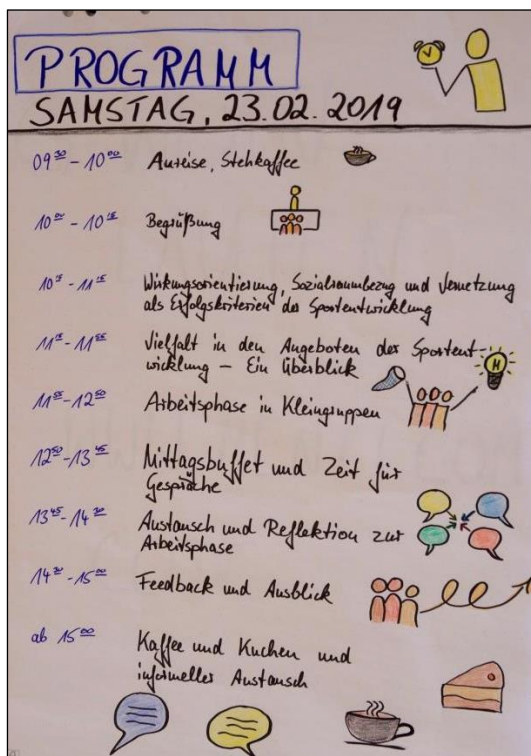 PROGRAMM
SAMSTAG, 23.02.2019
09³⁰ - 10⁰⁰ Anreise, Stehkaffee
10⁰⁰ - 10¹⁵ Begrüßung
10¹⁵ - 11¹⁵ Wirkungsorientierung, Sozialraumbezug und Vernetzung
als Erfolgskriterien der Sportentwicklung
11¹⁵ - 11⁵⁵ Vielfalt in den Angeboten der Sportent-
wicklung – Ein Überblick
11⁵⁵ - 12⁵⁰ Arbeitsphase in Kleingruppen
12⁵⁰ - 13⁴⁵ Mittagsbuffet und Zeit für
Gespräche
13⁴⁵ - 14³⁰ Austausch und Reflektion zur
Arbeitsphase
14³⁰ - 15⁰⁰ Feedback und Ausblick
ab 15⁰⁰ Kaffee und Kuchen und
informeller Austausch